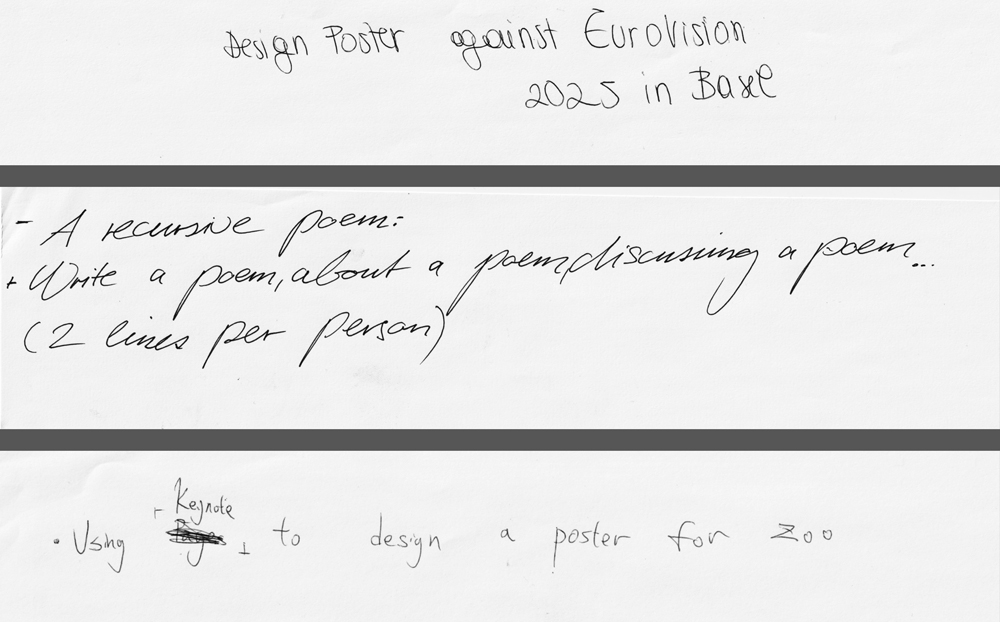 Design Poster against Eurovision
2025 in Basel
- A recursive poem:
+ Write a poem, about a poem, discussing a poem...
(2 lines per person)
Keynote
• Using to design a poster for Zoo